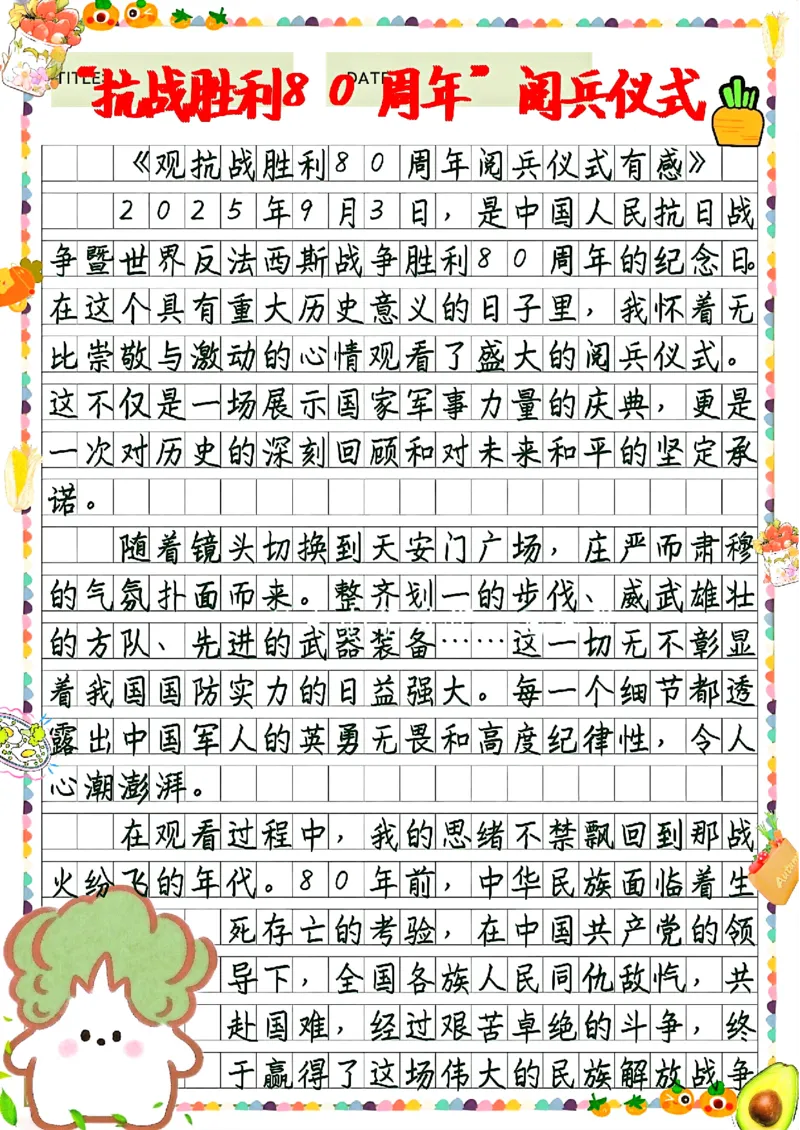 TITLE: DATE:
“抗战胜利80周年”阅兵仪式
《观抗战胜利80周年阅兵仪式有感》
2025年9月3日，是中国人民抗日战
争暨世界反法西斯战争胜利80周年的纪念日。
在这个具有重大历史意义的日子里，我怀着无
比崇敬与激动的心情观看了盛大的阅兵仪式。
这不仅是一场展示国家军事力量的庆典，更是
一次对历史的深刻回顾和对未来和平的坚定承
诺。
随着镜头切换到天安门广场，庄严而肃穆
的气氛扑面而来。整齐划一的步伐、威武雄壮
的方队、先进的武器装备……这一切无不彰显
着我国国防实力的日益强大。每一个细节都透
露出中国军人的英勇无畏和高度纪律性，令人
心潮澎湃。
在观看过程中，我的思绪不禁飘回到那战
火纷飞的年代。80年前，中华民族面临着生
死存亡的考验，在中国共产党的领
导下，全国各族人民同仇敌忾，共
赴国难，经过艰苦卓绝的斗争，终
于赢得了这场伟大的民族解放战争